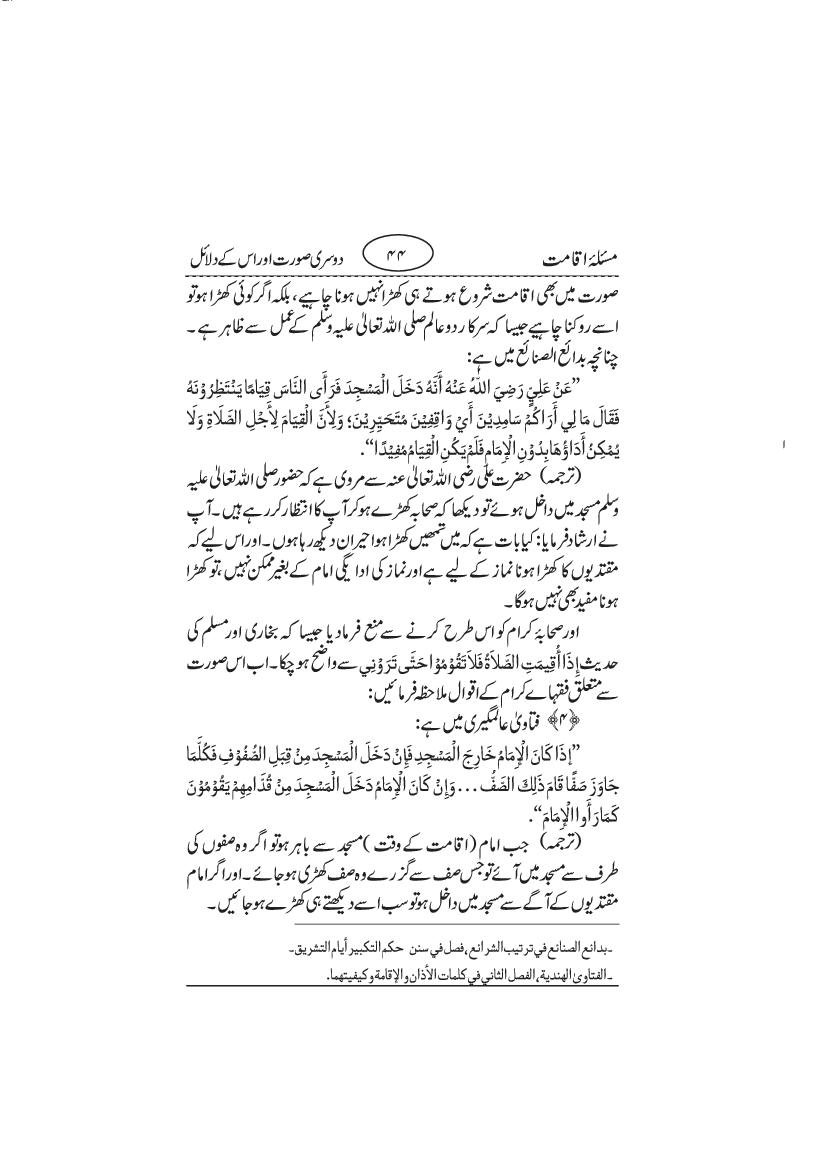 مسئلۂ اقامت ۴۴ دوسری صورت اور اس کے دلائل
صورت میں بھی اقامت شروع ہوتے ہی کھڑا نہیں ہونا چاہیے، بلکہ اگر کوئی کھڑا ہو تو
اسے روکنا چاہیے جیسا کہ سرکار دو عالم صلی اللہ تعالیٰ علیہ وسلم کے عمل سے ظاہر ہے۔
چنانچہ بدائع الصنائع میں ہے:
”عَنْ عَلِيٍّ رَضِيَ اللهُ عَنْهُ أَنَّهُ دَخَلَ الْمَسْجِدَ فَرَأَى النَّاسَ قِيَامًا يَنْتَظِرُوْنَهُ
فَقَالَ مَا لِي أَرَاكُمْ سَامِدِيْنَ أَيْ وَاقِفِيْنَ مُتَحَيِّرِيْنَ؛ وَلِأَنَّ الْقِيَامَ لِأَجْلِ الصَّلَاةِ وَلَا
يُمْكِنُ أَدَاؤُهَا بِدُوْنِ الْإِمَامِ فَلَمْ يَكُنِ الْقِيَامُ مُفِيْدًا“.
(ترجمہ) حضرت علی رضی اللہ تعالیٰ عنہ سے مروی ہے کہ حضور صلی اللہ تعالیٰ علیہ
وسلم مسجد میں داخل ہوئے تو دیکھا کہ صحابہ کھڑے ہو کر آپ کا انتظار کر رہے ہیں۔ آپ
نے ارشاد فرمایا: کیا بات ہے کہ میں تمھیں کھڑا ہوا حیران دیکھ رہا ہوں۔ اور اس لیے کہ
مقتدیوں کا کھڑا ہونا نماز کے لیے ہے اور نماز کی ادایگی امام کے بغیر ممکن نہیں، تو کھڑا
ہونا مفید بھی نہیں ہوگا۔
اور صحابۂ کرام کو اس طرح کرنے سے منع فرما دیا جیسا کہ بخاری اور مسلم کی
حدیث إِذَا أُقِيمَتِ الصَّلَاةُ فَلَا تَقُوْمُوْا حَتَّى تَرَوْنِي سے واضح ہو چکا۔ اب اس صورت
سے متعلق فقہاے کرام کے اقوال ملاحظہ فرمائیں:
﴿۴﴾ فتاویٰ عالمگیری میں ہے:
”إِذَا كَانَ الْإِمَامُ خَارِجَ الْمَسْجِدِ فَإِنْ دَخَلَ الْمَسْجِدَ مِنْ قِبَلِ الصُّفُوْفِ فَكُلَّمَا
جَاوَزَ صَفًّا قَامَ ذَلِكَ الصَّفُّ ... وَإِنْ كَانَ الْإِمَامُ دَخَلَ الْمَسْجِدَ مِنْ قُدَّامِهِمْ يَقُوْمُوْنَ
كَمَا رَأَوا الْإِمَامَ“.
(ترجمہ) جب امام (اقامت کے وقت) مسجد سے باہر ہو تو اگر وہ صفوں کی
طرف سے مسجد میں آئے تو جس صف سے گزرے وہ صف کھڑی ہو جائے۔ اور اگر امام
مقتدیوں کے آگے سے مسجد میں داخل ہو تو سب اسے دیکھتے ہی کھڑے ہو جائیں۔
۔بدائع الصنائع في ترتيب الشرائع، فصل في سنن حكم التكبير أيام التشريق۔
۔الفتاوىٰ الهندية، الفصل الثاني في كلمات الأذان والإقامة وكيفيتهما.